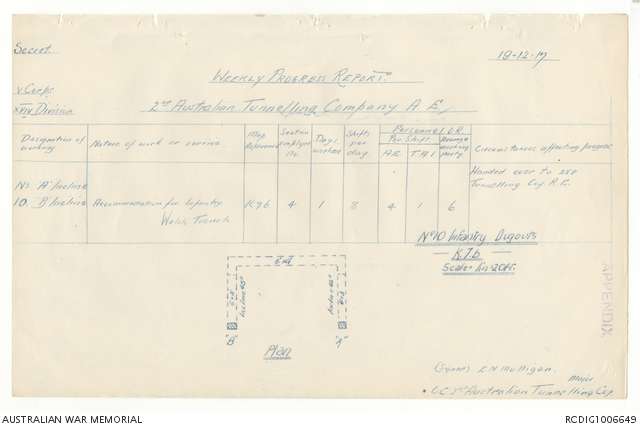 Secret
18-12-17
Weekly Progress Report.
V Corps
XXIV Division
2nd Australian Tunnelling Company A.E.
Designation of working
Nature of work or service
Map Reference
Section employed No.
Days worked
Shifts per day
Personnel O.R.
Per Shift
A.E. T.A.I.
Average working party
Circumstances affecting progress
No "A" Incline
10 "B" Incline
Accommodation for Infantry
Welsh Trench
K7b 4 1 8 4 1 6
Handed over to 258
Tunnelling Coy R.E.
No 10 Infantry Dugouts
K.7.b
Scale 1in=20ft.
6x4
Incline 45°
Incline 45°
"B" "A"
Plan
APPENDIX
(Signed) E N Mulligan.
Major
O.C. 2nd Australian Tunnelling Coy.
AUSTRALIAN WAR MEMORIAL
RCDIG1006649